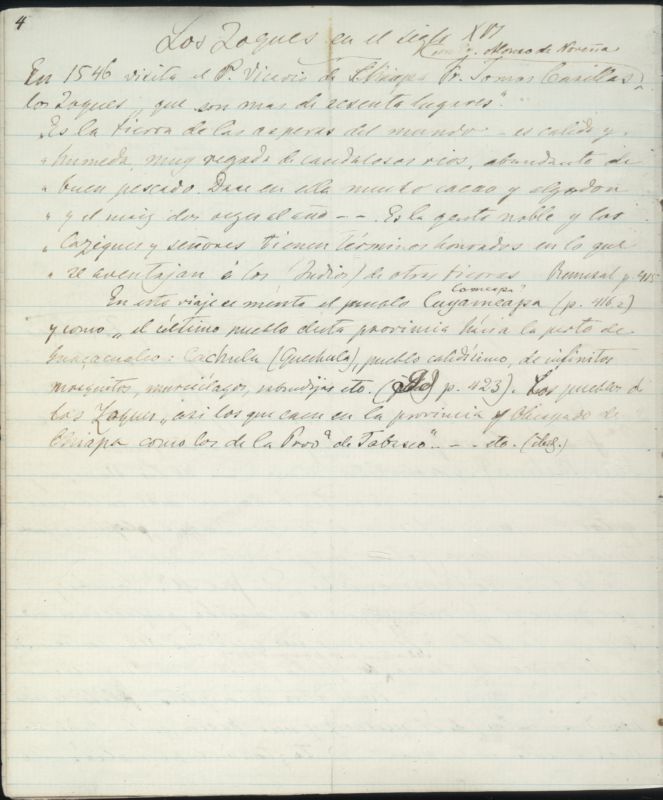 4
Los Zoques en el siglo XVI
y Alonso de Noreña
En 1546 visita el P. Vicario de Chiapa Fr. Tomas Casillas
los Zoques „que son mas de sesenta lugares".
„Es la tierra de las asperas del mundo – es calida y
„ humeda, muy regada de caudalosos rios, abundante de
„ buen pescado. Dase en ella mucho cacao y algodon
„ y el maiz dos vezes el año – – . Es la gente noble y los
„ Caziques y señores tienen términos honrados en lo que
„ se aventajan á los (Indios) de otras tierras Remesal p. 415
Comeapa"
En este viaje se mienta el pueblo Cuyameapa (p. 416 2)
y como „ el último pueblo desta provincia hácia la parte de
Guaçacualco: Cachula (Quechula), pueblo calidísimo, de infinitos
mosquitos, murciélagos, sabandijas etc. (ibid p. 423). Los pueblos de
los Zoques „asi los que caen en la provincia y Obispado de
Chiapa como los de la Prov.ª de Tabasco" – – . etc. (ibid.)